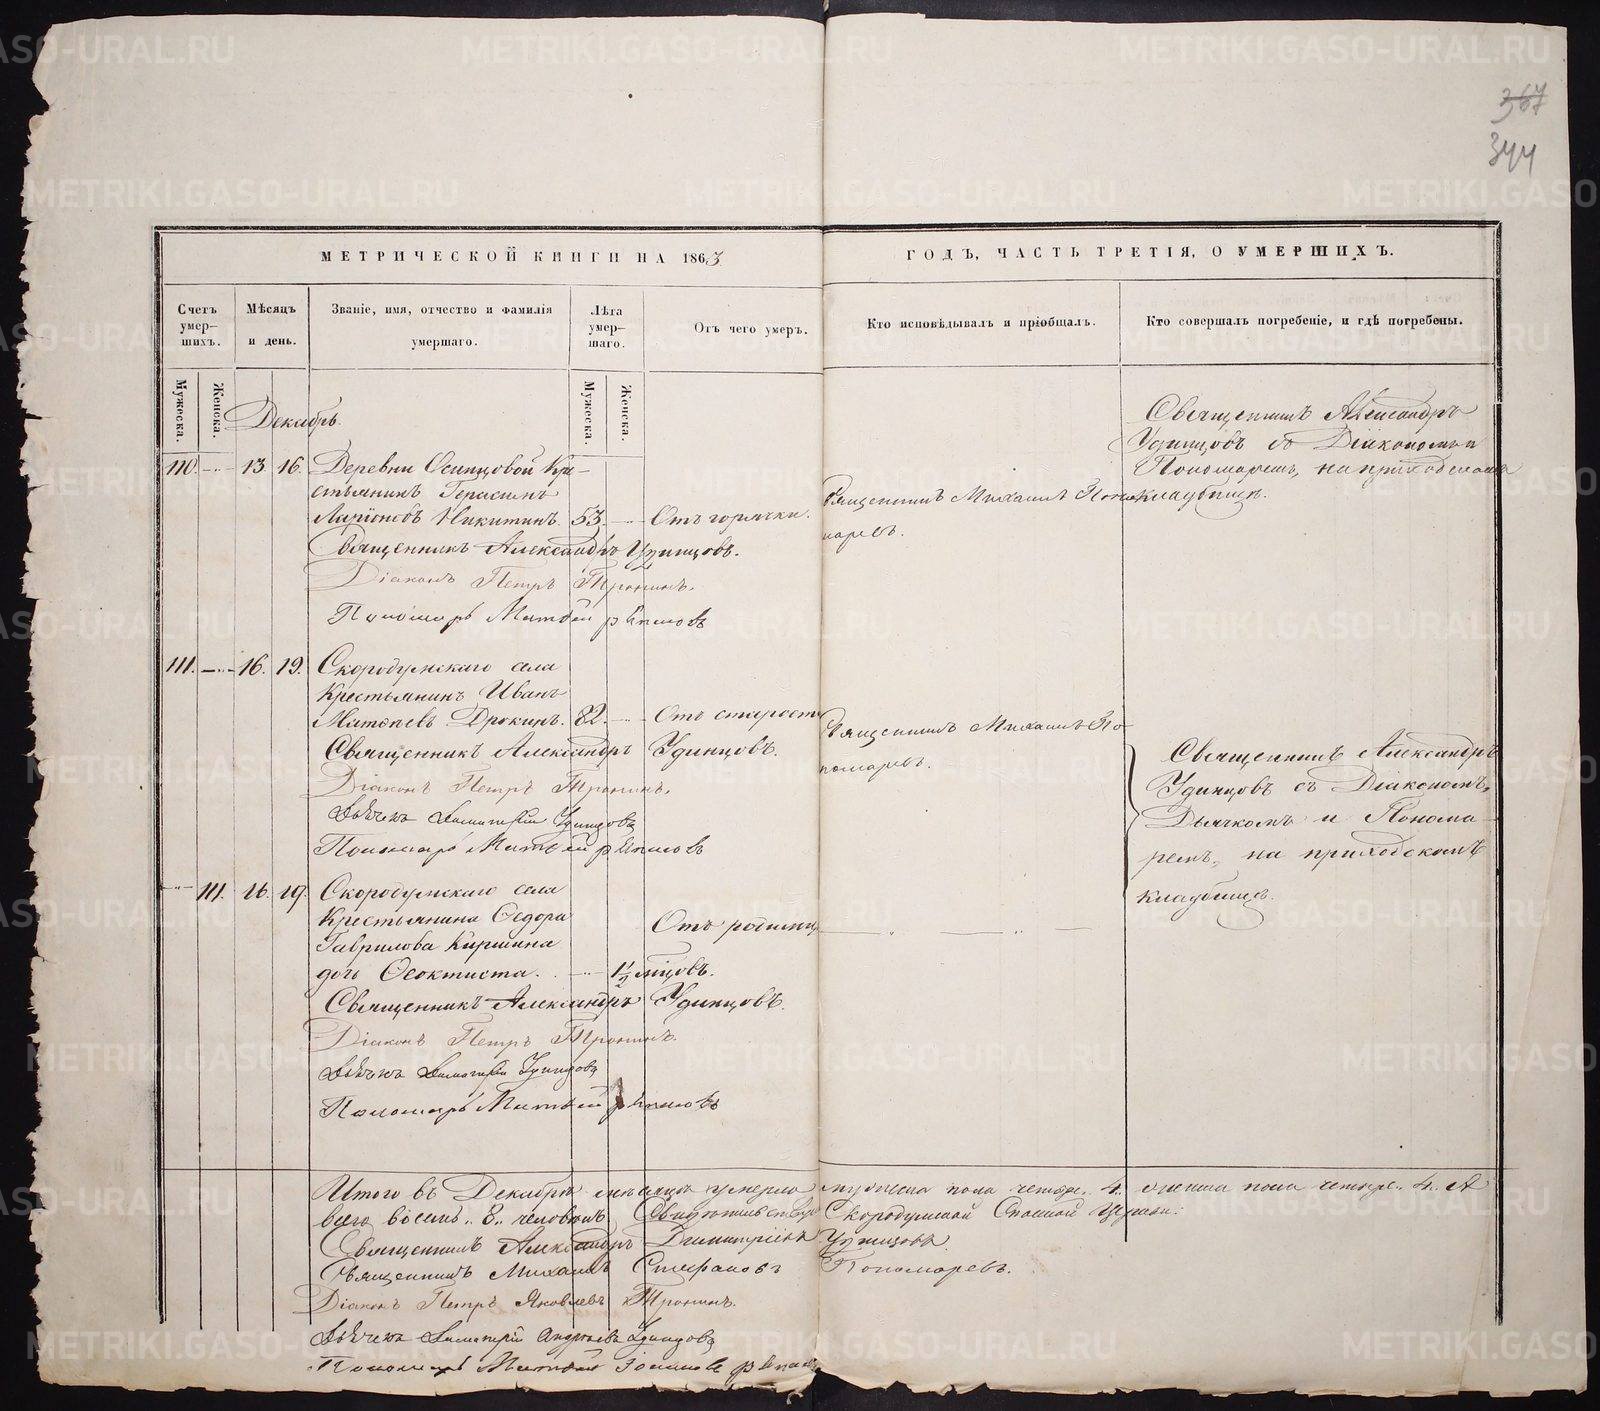 367
344
МЕТРИЧЕСКОЙ КНИГИ НА 1863 ГОДЪ, ЧАСТЬ ТРЕТІЯ, О УМЕРШИХЪ.
Счетъ умер-шихъ.
Мѣсяцъ и день.
Званіе, имя, отчество и фамилія умершаго.
Лѣта умер-шаго.
Отъ чего умеръ.
Кто исповѣдывалъ и пріобщалъ.
Кто совершалъ погребеніе, и гдѣ погребены.
Мужеска.
Женска.
Мужеска.
Женска.
Декабрь.
110. 13 16. Деревни Осинцовой Кре-
стьянинъ Герасимъ
Ларіоновъ Никитинъ. 53. Отъ горячки.
Священникъ Михаилъ Поно-
маревъ.
Священникъ Александръ
Удинцовъ съ Діакономъ и
Пономаремъ, на приходскомъ
кладбищѣ.
Священникъ Александръ Удинцовъ.
Діаконъ Петръ Тронинъ.
Пономарь Матвѣй
111. 16. 19. Скородумскаго села
Крестьянинъ Иванъ
Матвѣевъ Дрокинъ. 82. Отъ старости
Священникъ Михаилъ По-
номаревъ.
Священникъ Александръ Удинцовъ.
Діаконъ Петръ Тронинъ.
Дьячекъ Димитрій Удинцовъ
Пономарь Матвѣй
Священникъ Александръ
Удинцовъ съ Діакономъ,
Дьячкомъ и Понома-
ремъ, на приходскомъ
кладбищѣ.
111. 16. 19. Скородумскаго села
Крестьянина Ѳедора
Гаврилова Киршина
дочь Ѳеоктиста. 1½
Отъ родими
мцовъ.
Священникъ Александръ Удинцовъ.
Діаконъ Петръ Тронинъ.
Дьячекъ Димитрій Удинцовъ
Пономарь Матвѣй
Итого въ Декабрѣ мѣсяцѣ умерло мужеска пола четыре. 4. женска пола четыре. 4. А
всего восемь. 8. человѣкъ. Скородумской Спасской Церкви:
Священникъ Александръ Димитріевъ Удинцовъ.
Священникъ Михаилъ Стефановъ Пономаревъ.
Діаконъ Петръ Яковлевъ Тронинъ.
Дьячекъ Димитрій Андреевъ Удинцовъ
Пономарь Матвѣй Іоанновъ
METRIKI.GASO-URAL.RU